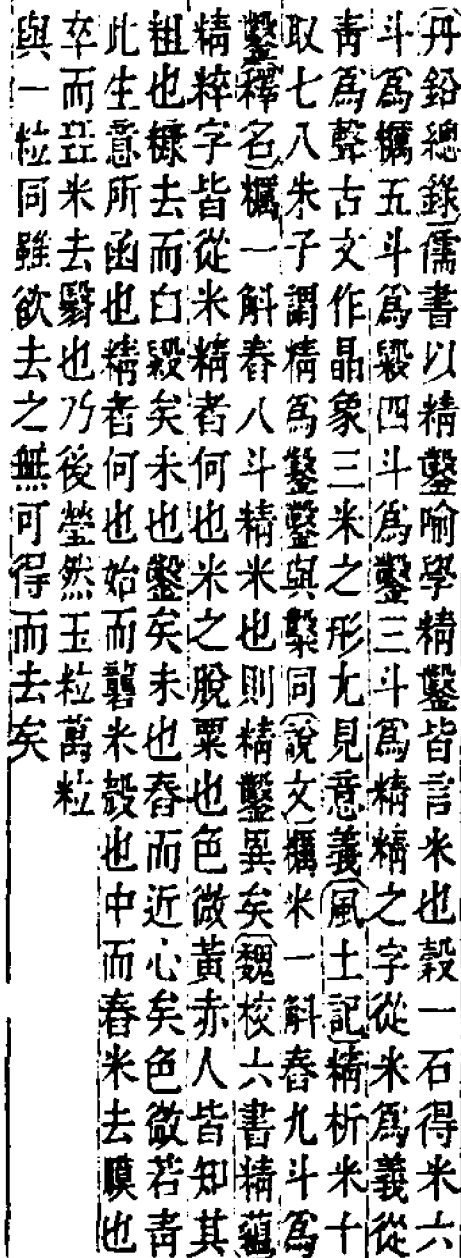 丹鉛總錄儒書以精鑿喻學精鑿皆言米也穀一石得米六
斗爲糲五斗爲毇四斗爲鑿三斗爲精精之字從米爲義從
青爲聲古文作晶象三米之形尤見意義風土記精析米十
取七八朱子謂精爲鑿鑿與糳同說文糲米一斛舂九斗爲
鑿釋名糲一斛舂八斗精米也則精鑿異矣魏校六書精蘊
精粹字皆從米精者何也米之脫粟也色微黃赤人皆知其
粗也糠去而白毇矣未也鑿矣未也舂而近心矣色微若青
此生意所函也精者何也始而礱米殼也中而舂米去膜也
卒而㠭米去翳也乃後瑩然玉粒萬粒
與一粒同雖欲去之無可得而去矣